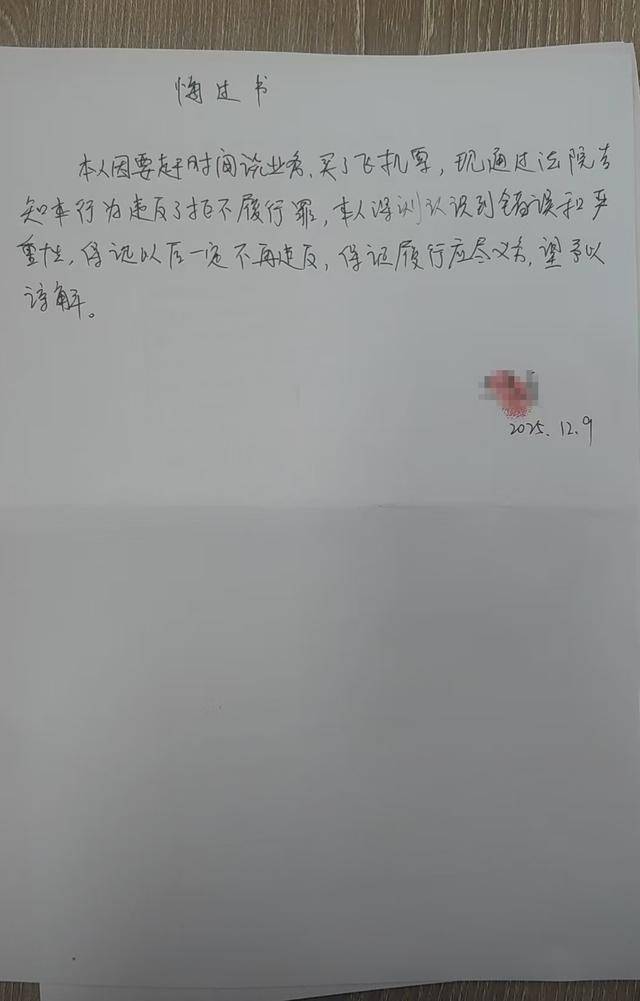 悔过书
本人因要赶时间谈业务，买了飞机票，现通过法院告
知本行为违反了拒不履行罪，本人深刻认识到错误和严
重性，保证以后一定不再违反，保证履行应尽义务，望予以
谅解。
2025.12.9